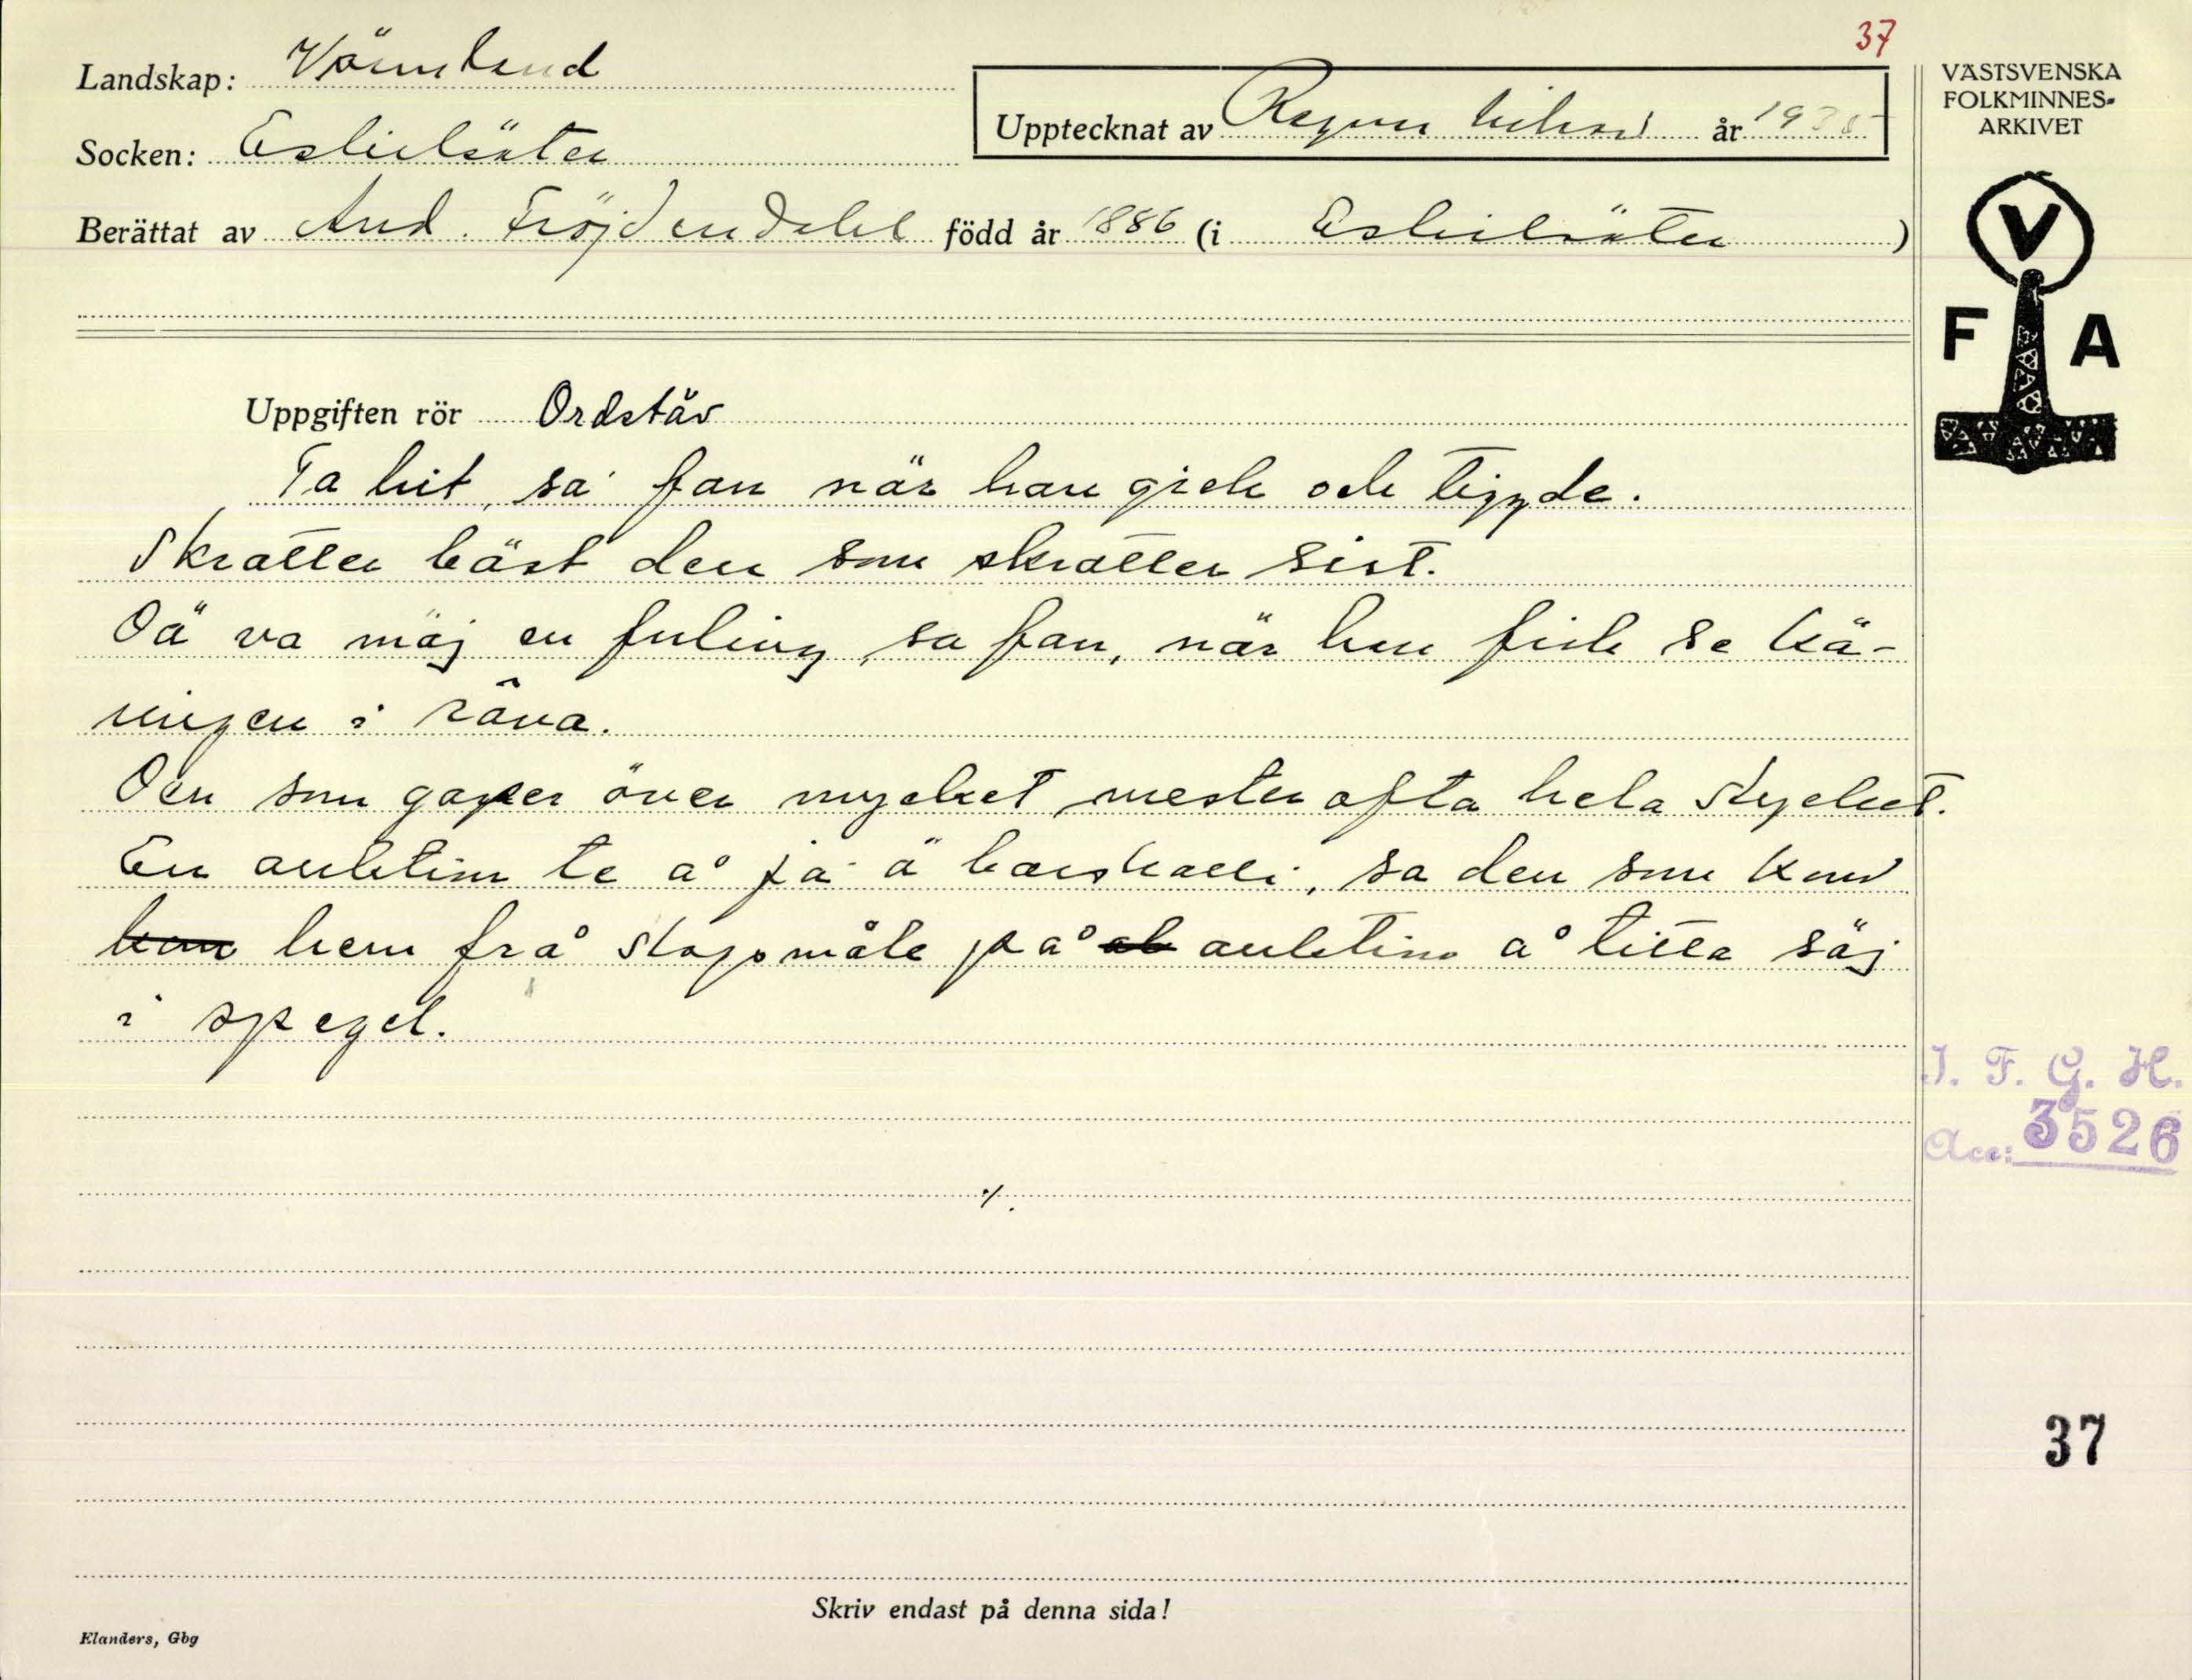 37
Landskap: Värmland
Socken: Eskilsäter
Upptecknat av Ragnar Nilsson år 1935
VÄSTSVENSKA
FOLKMINNES-
ARKIVET
Berättat av And. Fröjdendahl född år 1886 (i Eskilsäter)
V
F A
Uppgiften rör Ordstäv
Ta hit, sa fan när han gick och tiggde.
Skratter bäst den som skratter sist.
Dä va mäj en fuling, sa fan, när han fick se kä-
ringen i röva.
Den som gaper över mycket, mester ofta hela stycket.
En anletim te å ja ä barskalli, sa den som kom
hem frå slagsmåle på anletino å titta säj
i spegel.
I. F. G. H.
Acc: 3526
·/.
37
Skriv endast på denna sida!
Elanders, Gbg